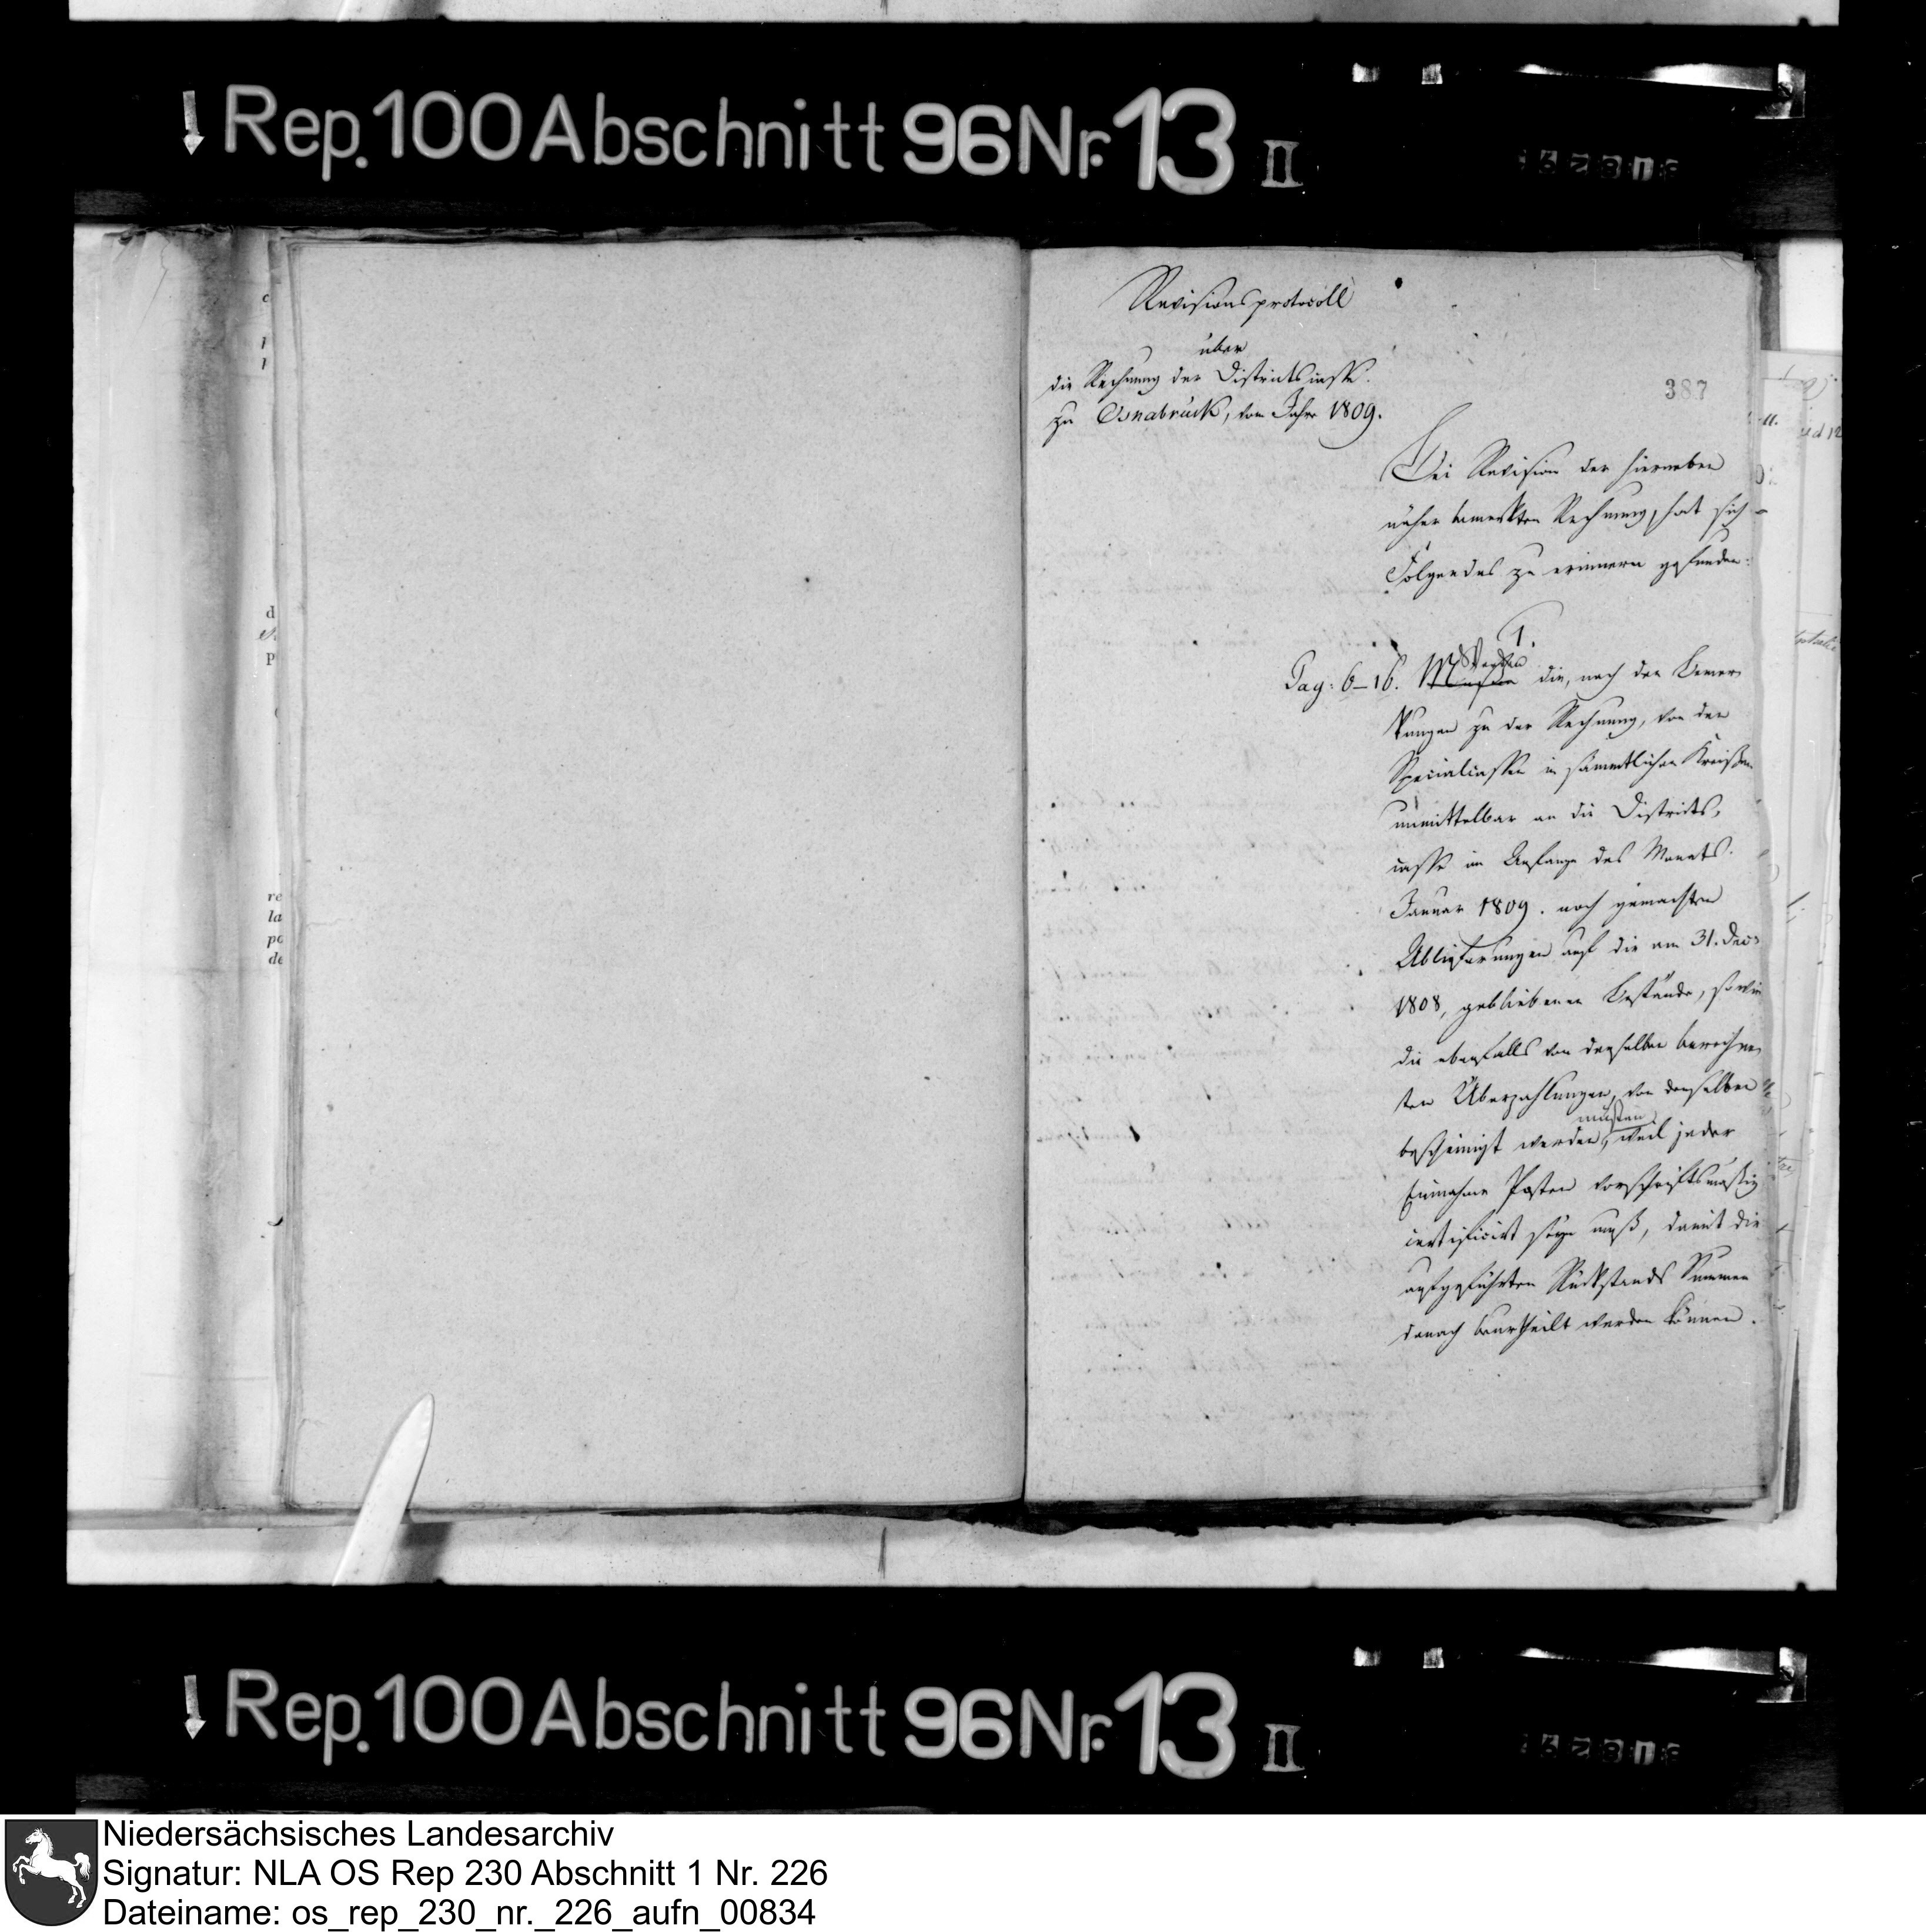 Rep. 100 Abschnitt 96 Nr. 13 II
Revisionsprotocoll
über
die Rechnung der Districtscasse
zu Osnabrück, vom Jahre 1809.
387
Bei Revision der hierneben
näher bemerkten Rechnung, hat sich
Folgendes zu erinnern gefunden:
1.
Pag: 6–16. die, nach den Bemer
kungen zu der Rechnung, von den
Specialcassen in sämmtlichen Kreißen
unmittelbar an die Districts,
casse im Anfange des Monats
Januar 1809. noch gemachten
Ablieferungen auf die am 31. Dec.
1808, gebliebenen Bestände, sowie
die ebenfalls von denselben berechne
ten Überzahlungen, von denselben
müßten
bescheinigt werden, weil jeder
Einnahme Posten vorschriftsmäßig
certificirt seyn muß, damit die
aufgeführten Rückstands Summen
danach beurtheilt werden können.
Rep. 100 Abschnitt 96 Nr. 13 II
Niedersächsisches Landesarchiv
Signatur: NLA OS Rep 230 Abschnitt 1 Nr. 226
Dateiname: os_rep_230_nr._226_aufn_00834